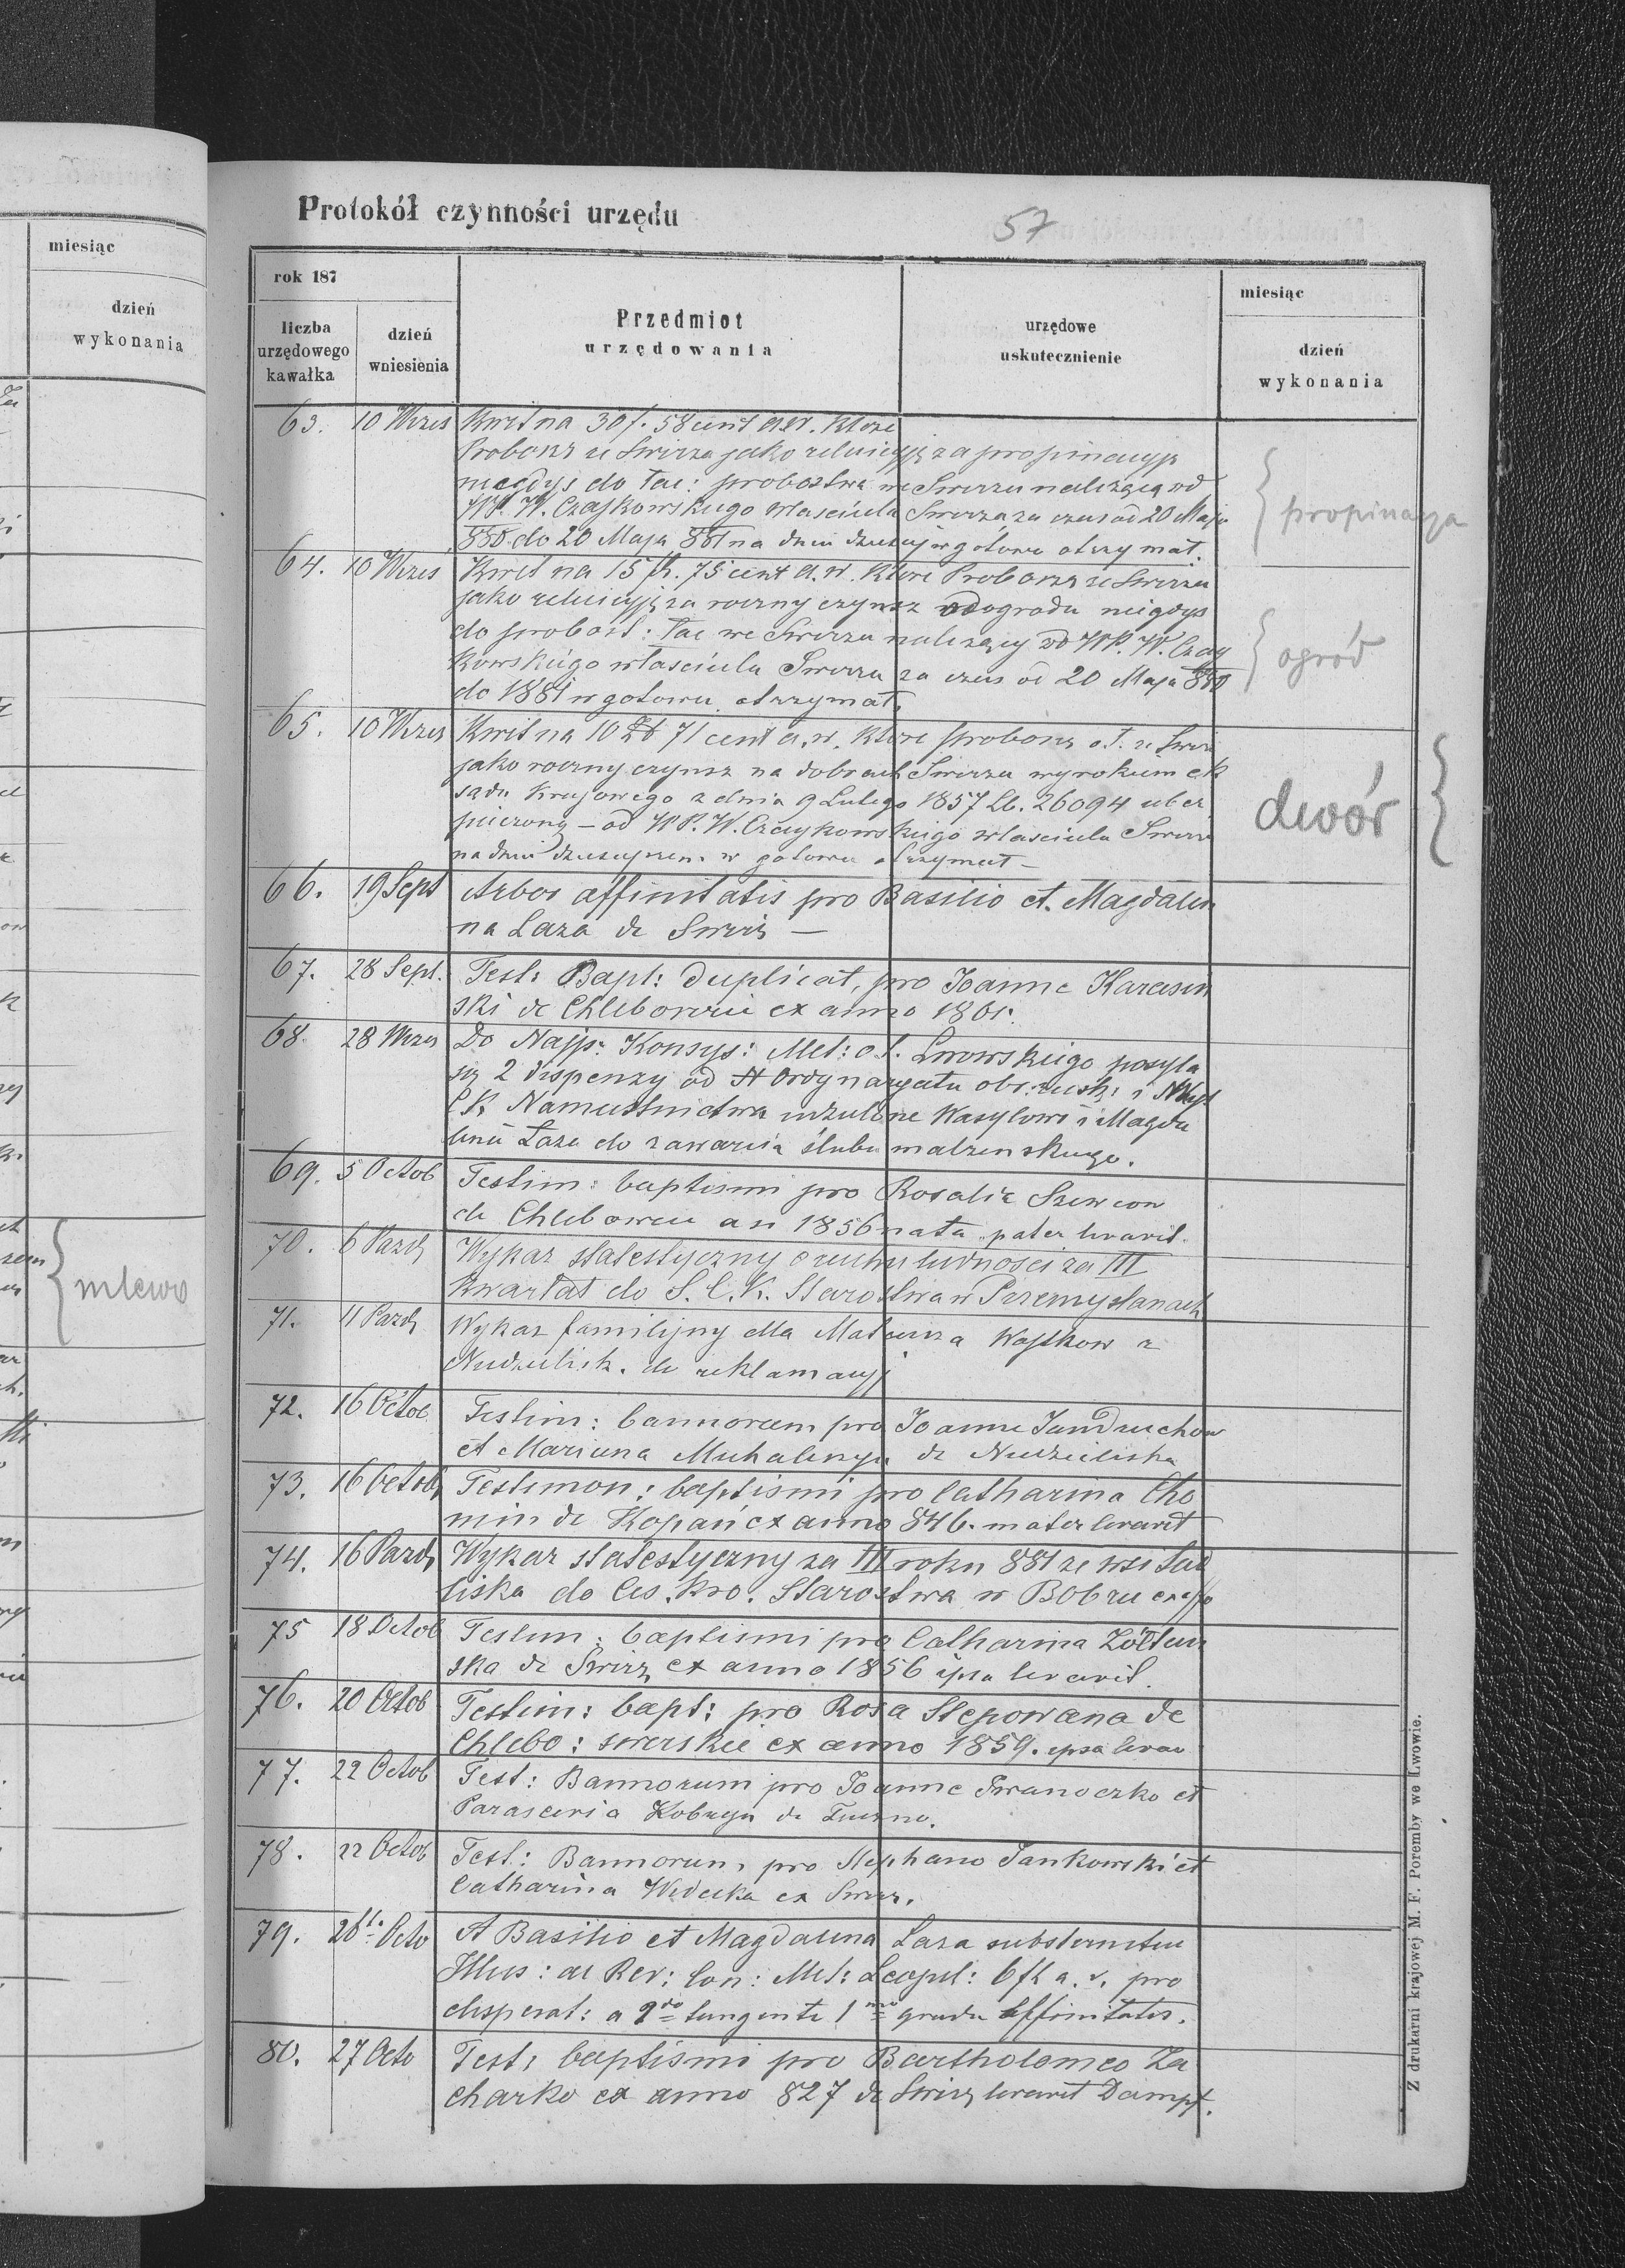 miesiąc
dzień
wykonania
mlewo
Protokół czynności urzędu
57
rok 187
liczba urzędowego kawałka
dzień wniesienia
Przedmiot urzędowania
urzędowe uskutecznienie
miesiąc
dzień wykonania
63. 10 Wrzes Kwit na 30 f. 58 cent a.w. które
Proboszcz ze Swirza jako reluicyję za propinacyję
niegdys do łac: probostwa we Swirzu należącą od
WP. W. Czajkowskiego własciciela Swirza za czas od 20 Maja
880 do 20 Maja 881 na dniu w gotowce otrzymał.
propinacya
64. 10 Wrzes Kwit na 15 fl. 75 cent a.w. które Proboszcz ze Swirza
jako reluicyję za roczny czynsz od ogrodu niegdys
do probost: łac we Swirzu należący od WP. W. Czay
kowskiego własciciela Swirza za czas od 20 Maja 880
do 1881 w gotowce otrzymał.
ogród
65. 10 Wrzes Kwit na 10 Zł 71 cent a.w. które proboszcz o.ł. ze Swirz
jako roczny czynsz na dobrach Swirza wyrokiem ck
sądu Krajowego z dnia 9 Lutego 1857 Lb. 26094 ubez
pieczony – od WP. W. Czaykowskiego własciciela Swirza
na dniu w gotowce otrzymał –
dwór
66. 19 Sept Arbor affinitatis pro Basilio et Magdale
na Laza de Swirz –
67. 28 Sept. Test: Bapt: duplicat, pro Joanne Karasin
ski de Chlebowice ex anno 1861.
68. 28 Wrzes Do Najp: Konsys: Met: o.ł. Lwowskiego posyła
się 2 dispenzy od Ordynaryatu obr: rusk: i
C K Namiestnictwa udzielone Wasylowi i Magda
linie Łaza do zawarcia ślubu malzenskiego.
69. 5 Octob Testim: baptismi pro Rosalia Szewcow
de Chlebowce an 1856 nata pater levavit.
70. 6 Pazdz Wykaz statestyczny o ruchu ludnosci za III
kwartał do S. C. K. Starostwa w Przemyslanach
71. 11 Pazdz Wykaz familijny dla Mateusza Wojtkow z
Niedzielisk. do reklamacyj
72. 16 Octob Testim: bannorum pro Joanne Jandruchow
et Mariana Michalenyn de Niedzieliska
73. 16 Octob Testimon: baptismi pro Catharina Cho
min de Kopań ex anno 846. mater levavit
74. 16 Pazdz Wykaz statestyczny za III roku 881 ze wsi
liska do Ces. Kro. Starostwa w Bobrce
75 18 Octob Testim: baptismi pro Catharina Żółtun
ska de Swirz ex anno 1856 ipsa levavit.
76. 20 Octob Testim: bapt: pro Rosa Stepowana de
Chlebo: swirskie ex anno 1859. ipsa levav
77. 22 Octob Test: Bannorum pro Joanne Iwanoczko et
Parascevia Kobryn de Tuczne.
78. 22 Octob Test: Bannorum pro Stephano Jankowski et
Catharina Widecka ex Swirz.
79. 26 Octo A Basilio et Magdalena Laza substernitur
Illus: ac Rev: Con: Met: Leopol: 6 fl a. v. pro
dispensat: a 2do tangente 1mo gradu affinitatis.
80. 27 Octo Test: baptismi pro Bartholomeo Za
charko ex anno 827 de Swirz levavit Dampf.
Z drukarni krajowej M. F. Poremby we Lwowie.